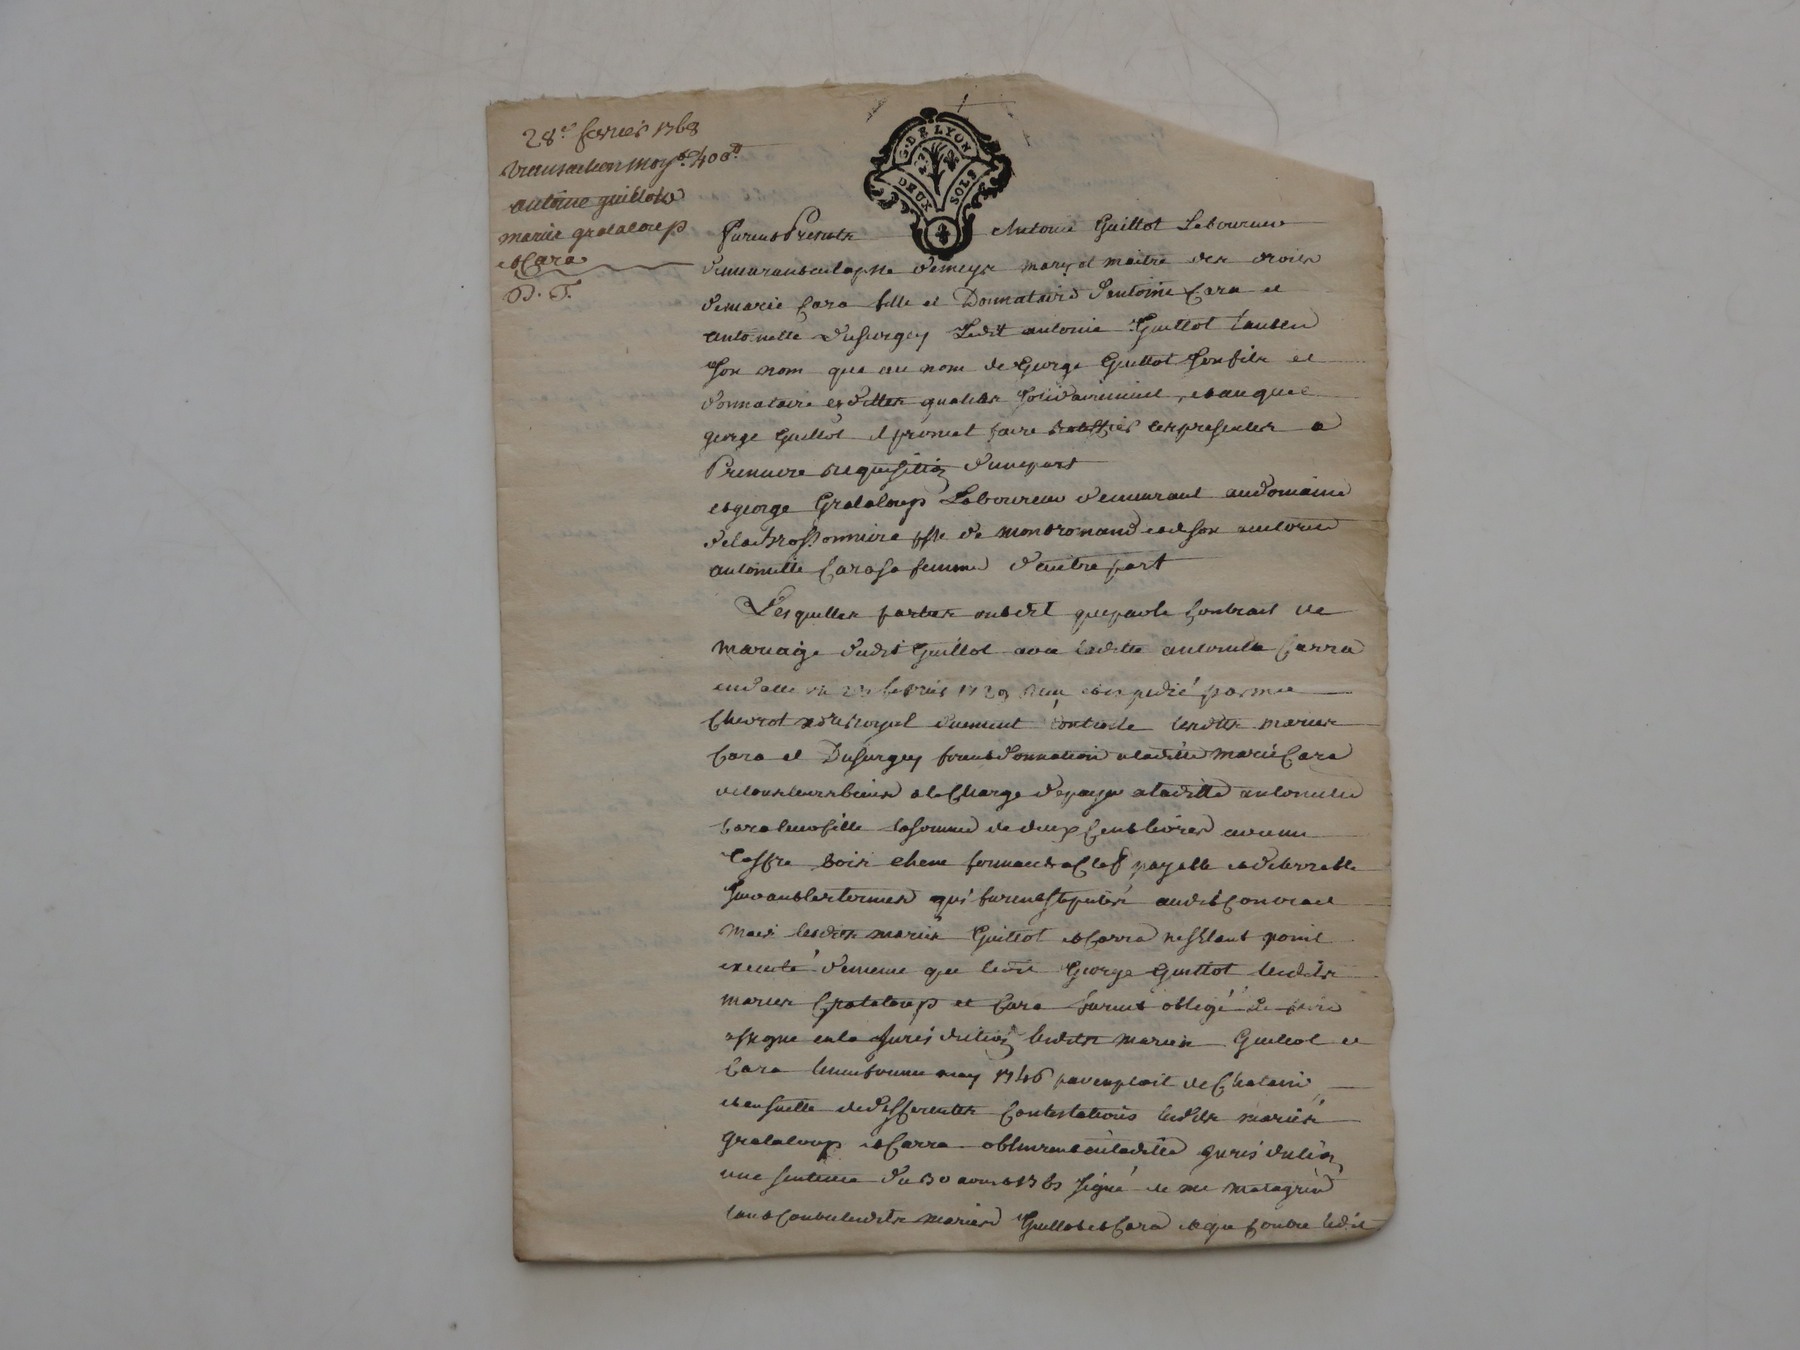 28.e fevrier 1768
transaction moy.t 400.tt
antoine guillot
mariés grataloup
et Cara
B. T.
G. DE LYON
DEUX SOLS
4
Furent Presents Antoine Guillot Laboureur
demeurant en la psse d'emeys mary et maitre des droits
de marie Cara fille et Donnataire d'antoine Cara et
antoinette Dusurgey Ledit antoine Guillot tant en
son nom que au nom de George Guillot son fils et
donnataire esdittes qualités solidairement, et auquel
george Guillot il promet faire ratiffier les presentes a
Premiere requisition d'une part
et george Grataloup Laboureur demeurant au domaine
de la Brossonniere psse de montromand et de son autorité
antoinette Cara sa femme d'autre part
Lesquelles parties ont dit que par le Contrait de
mariage dudit Guillot avec laditte antoinette Carra
en datte du fevrier 1729 receu et expedié par me
Chevrot nore Royal duement controlle lesdits mariés
Cara et Dusurgey firent donnation a laditte marie Cara
de tous leurs biens a la Charge de payer a laditte antoinette
Cara leur fille la somme de deux Cent livres avec un
Coffre bois chene fermant a Clef payable et delivrable
suivant les termes qui furent stipulés audit Contrait
mais lesdits mariés Guillot et Carra n'estant point
executé de meme que ledit George Guillot lesdits
mariés Grataloup et Cara furent obligé de faire
assigné en la jurisdiction lesdits mariés Guillot et
Cara le may 1746 par exploit de Chatain
et ensuitte de differentes Contestations lesdits mariés
grataloup et Carra obtinrent en laditte jurisdiction
une sentence du 30 signé de me matagrin
tant contre lesdits mariés Guillot et Cara et que contre ledit